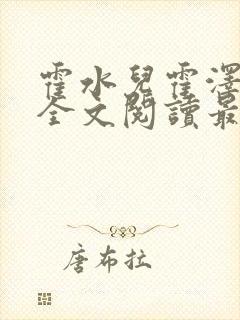 霍水兒霍澤
全文閱讀最
唐布拉